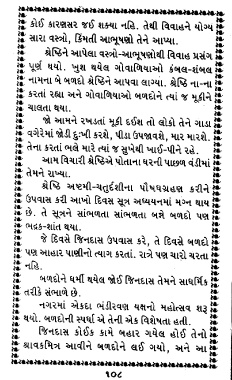 કોઈ કારણસર જઈ શક્યા નહિ. તેથી વિવાહને યોગ્ય
સારા વસ્ત્રો, કિંમતી આભૂષણો તેને આપ્યા.
શ્રેષ્ઠિને આપેલા વસ્ત્રો-આભૂષણોથી વિવાહ પ્રસંગ
પૂર્ણ થયો. ખુશ થયેલ ગોવાળિયાઓ કંબલ-શંબલ
નામના બે બળદો શ્રેષ્ઠિને આપવા લાગ્યા. શ્રેષ્ઠિ ના-ના
કરતાં રહ્યા અને ગોવાળિયાઓ બળદોને ત્યાં જ મૂકીને
ચાલતા થયા.
જો આમને રખડતાં મૂકી દઈશ તો લોકો તેને ગાડા
વગેરેમાં જોડી દુઃખી કરશે, પીડા ઉપજાવશે, માર મારશે.
તેના કરતાં ભલે મારે ત્યાં જ સુખેથી ખાઈ-પીને રહે.
આમ વિચારી શ્રેષ્ઠિએ પોતાના ઘરની પાછળ વંડીમાં
તેમને રાખ્યા.
શ્રેષ્ઠિ અષ્ટમી-ચતુર્દશીના પૌષધગ્રહણ કરીને
ઉપવાસ કરી આખો દિવસ સૂત્ર અધ્યયનમાં મગ્ન થાય
છે. તે સૂત્રને સાંભળતા સાંભળતા બન્ને બળદો પણ
ભદ્રક-શાંત થયા.
જે દિવસે જિનદાસ ઉપવાસ કરે, તે દિવસે બળદો
પણ આહાર પાણીનો ત્યાગ કરતાં. રાત્રે પણ ચારો ચરતા
નહિ.
બળદોને ધર્મી થયેલ જોઈ જિનદાસ તેમને સાધર્મિક
તરીકે સંભાળે છે.
નગરમાં એકદા ભંડીરવણ યક્ષનો મહોત્સવ શરૂ
થયો. બળદોની સ્પર્ધા એ તેની એક વિશેષતા હતી.
જિનદાસ કોઈક કામે બહાર ગયેલ હોઈ તેનો
શ્રાવકમિત્ર આવીને બળદોને લઈ ગયો, અને આ
૧૦૮